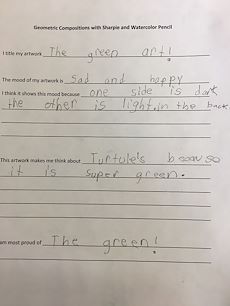 Geometric Compositions with Sharpie and Watercolor Pencil
I title my artwork The green art!
The mood of my artwork is Sad and happy
I think it shows this mood because one side is dark
the other is light.in the back
This artwork makes me think about Turtule's becauso
it is super green.
am most proud of The green!